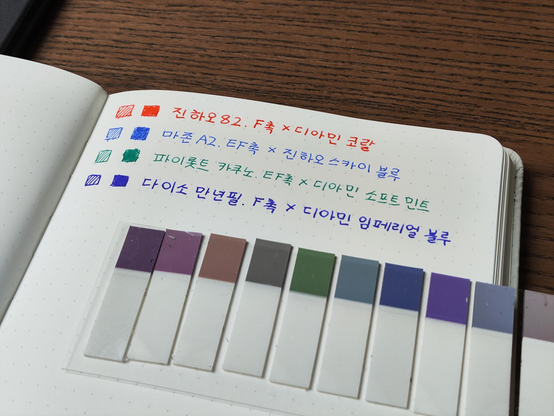 진하오82. F촉 × 디아민 코랄
마존 A2. EF촉 × 진하오 스카이 블루
파이롯트 카쿠노. EF촉 × 디아민 소프트 민트
다이소 만년필. F촉 × 디아민 임페리얼 블루